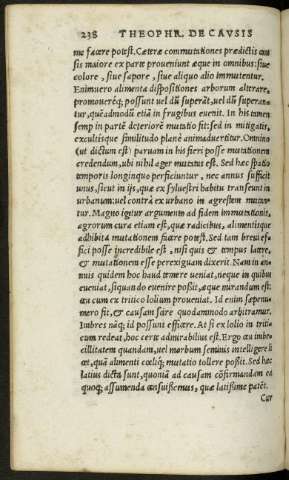 238 THEOPHR. DE CAVSIS
me facere potest. Cæteræ commutationes prædictis
sis maiore ex parte proueniunt æque in omnibus: siue
colore, siue sapore, siue aliquo alio immutentur.
Enimuero alimenta dispositiones arborum alterare,
promoueréq; possunt uel dũ superãt, uel dũ superantur,
tur, quẽadmodũ etiã in frugibus euenit. In his tamen
semp in partẽ deteriorẽ mutatio fit: sed in mitigatis,
excultisque similitudo planè animaduertitur. Omnino
(ut dictum est) paruam in his fieri posse mutationem
credendum, ubi nihil ager mutatus est. Sed hæc spatio
temporis longinquo perficiuntur, nec annus sufficit
unus, sicut in ijs, quæ ex syluestri habitu transeunt in
urbanum: uel contrà ex urbano in agrestem
tur. Magno igitur argumento ad fidem immutationis,
agrorum cura etiam est, quæ radicibus, alimentisque
adhibita mutationem facere potest. Sed tam breui effici
fici posse incredibile est, nisi quis et tempus latere,
et mutationem esse perexiguam dixerit. Nam in
nuis quidem hoc haud temere ueniat, neque in quibus
eueniat, siquando euenire possit, æque mirandum est:
ac cum ex tritico lolium proueniat. Id enim sæpenu
mero fit, et causam scire quodammodo arbitramur.
Imbres nãq; id possunt efficere. At si ex lolio in triti
cum redeat, hoc certe admirabilius est. Ergo
cillitatem quandam, uel morbum seminis intelligere li
cet, quã alimenti cœliq; mutatio tollere possit. Sed hæc
latius dicta sunt, quoniã ad causam cõfirmandam ea
quoq; assumenda censuissemus, quæ latissime patẽt.
Cur